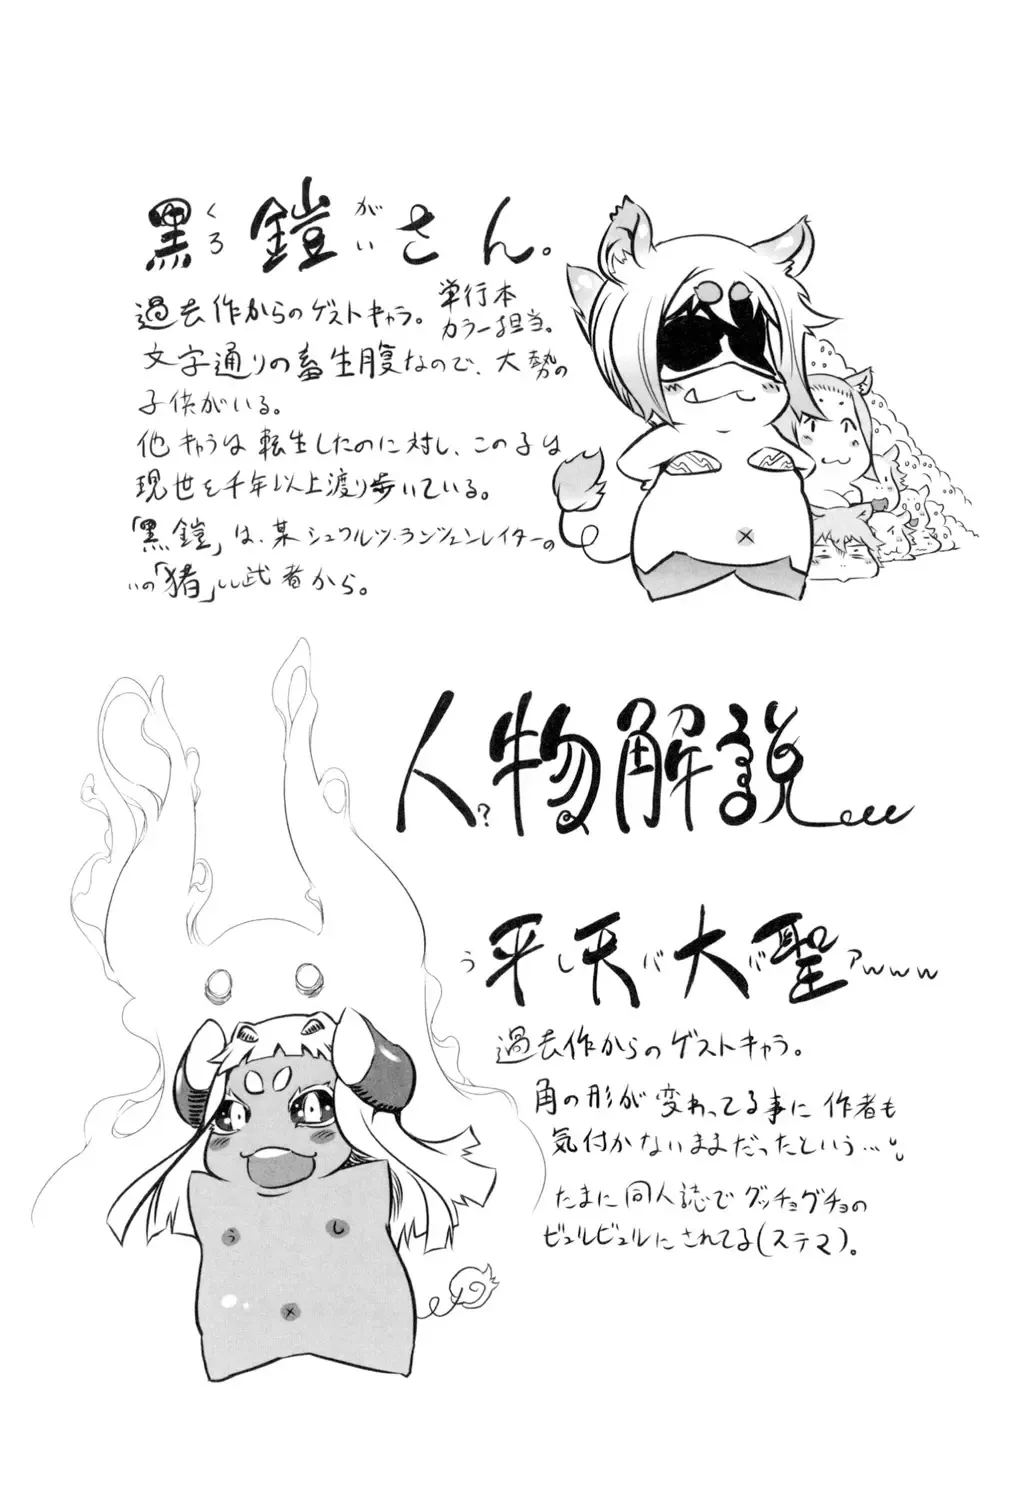 黒鎧さん。
くろ がい
過去作からのゲストキャラ。
単行本
カラー担当。
文字通りの畜生腹なので、大勢の
子供がいる。
他キャラは転生したのに対し、この子は
現世を千年以上渡り歩いている。
「黒鎧」は、某シュワルツ・ランツェンレイターの
"の「猪」い武者から。
人?物解説
平天大聖
うしババアwww
過去作からのゲストキャラ。
角の形が変わってる事に作者も
気付かないままだったという…。
たまに同人誌でグッチョグチョの
ビュルビュルにされてる(ステマ)。
う
し